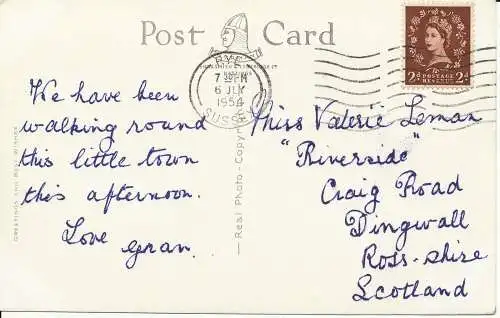 Post Card
RYE
7 30 PM
6 JLY
1954
SUSSEX
2d POSTAGE REVENUE 2d
We have been
walking round
this little town
this afternoon.
Love
Gran.
Real Photo - Copyright
Miss Valerie Leman
"Riverside"
Craig Road
Dingwall
Ross-shire
Scotland